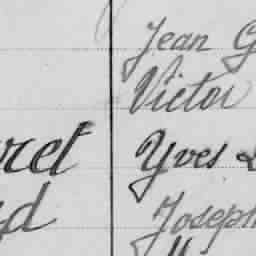 Jean G
Victor
ret Yves L
d Joseph